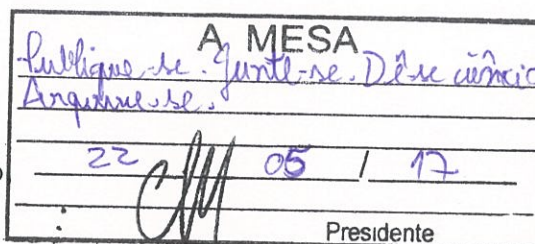 A MESA
Publique-se. Junte-se. Dê-se ciência
Arquive-se.
22 05 / 17
Presidente